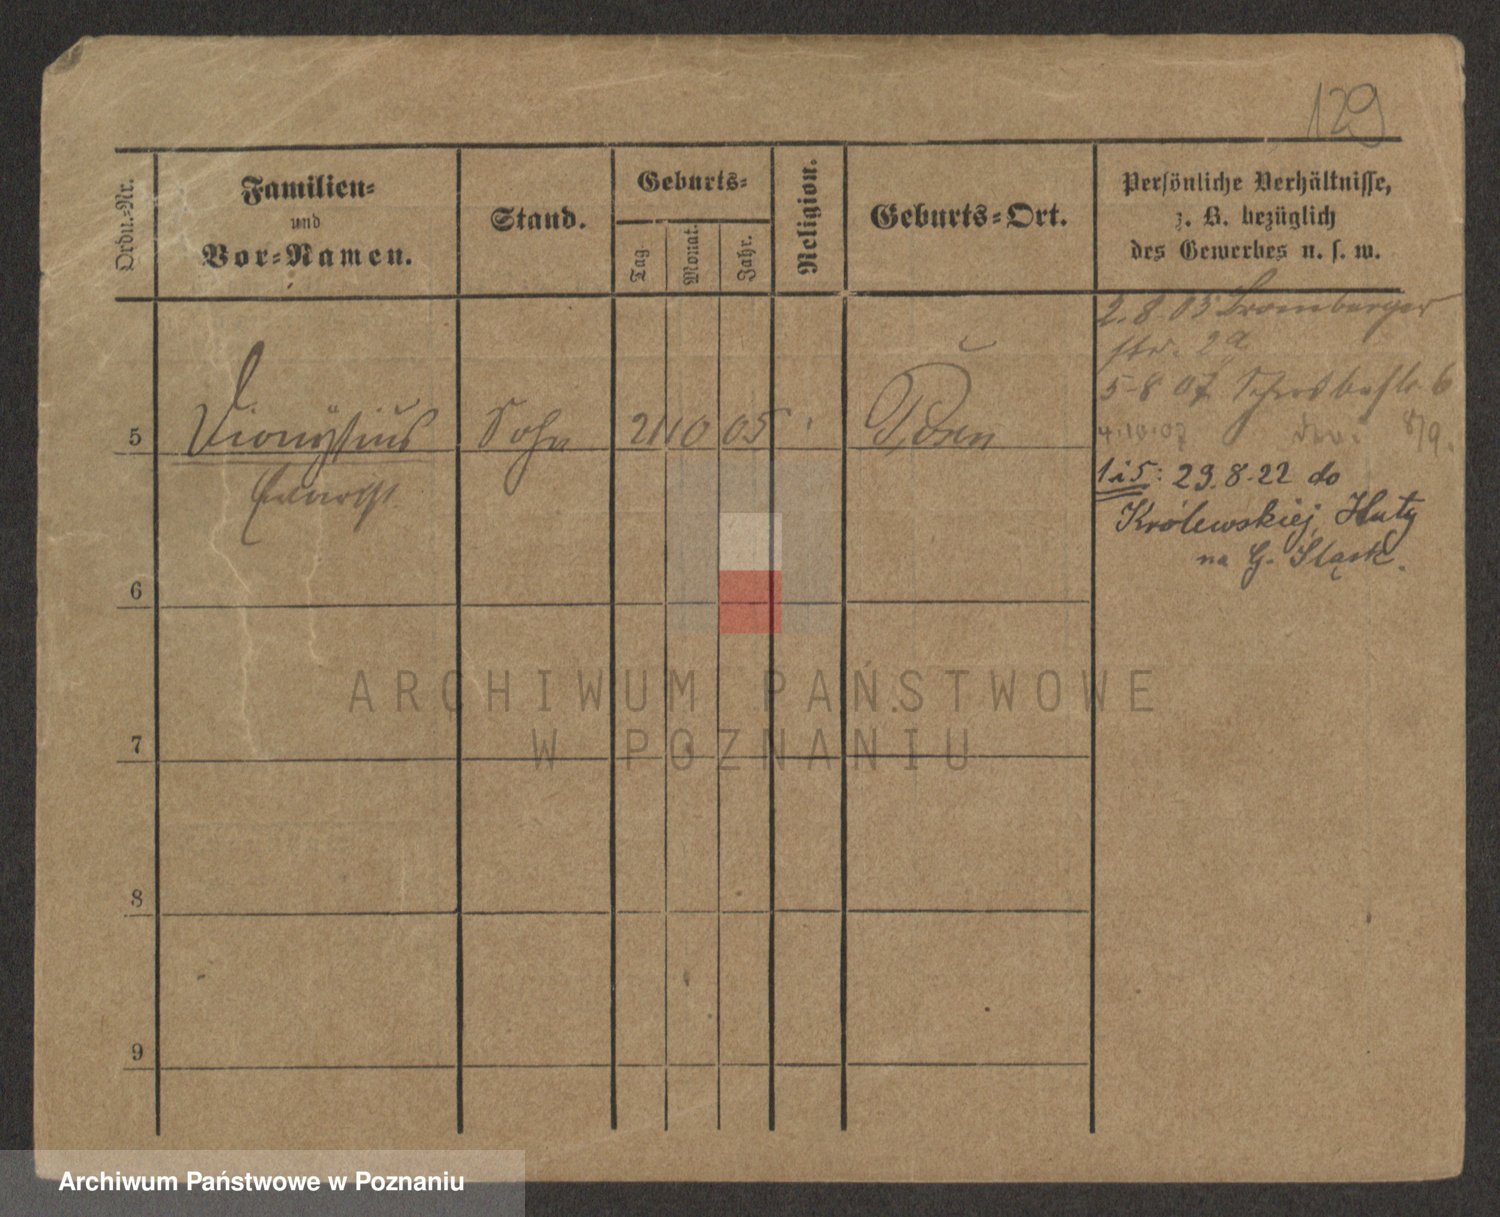 129
Ordn.-Nr.
Familien-
und
Vor-Namen.
Stand.
Geburts-
Tag
Monat.
Jahr.
Religion.
Geburts-Ort.
Persönliche Verhältnisse,
z. B. bezüglich
des Gewerbes u. s. w.
2.8.05 Bromberger
str. 2a
5-8 07
4.10.07
5 Dionysius Sohn 2 10 05 Posen
1 i 5: 29.8.22 do
Królewskiej Huty
na G. Śląsk.
6
7
8
9
ARCHIWUM PAŃSTWOWE
W POZNANIU
Archiwum Państwowe w Poznaniu